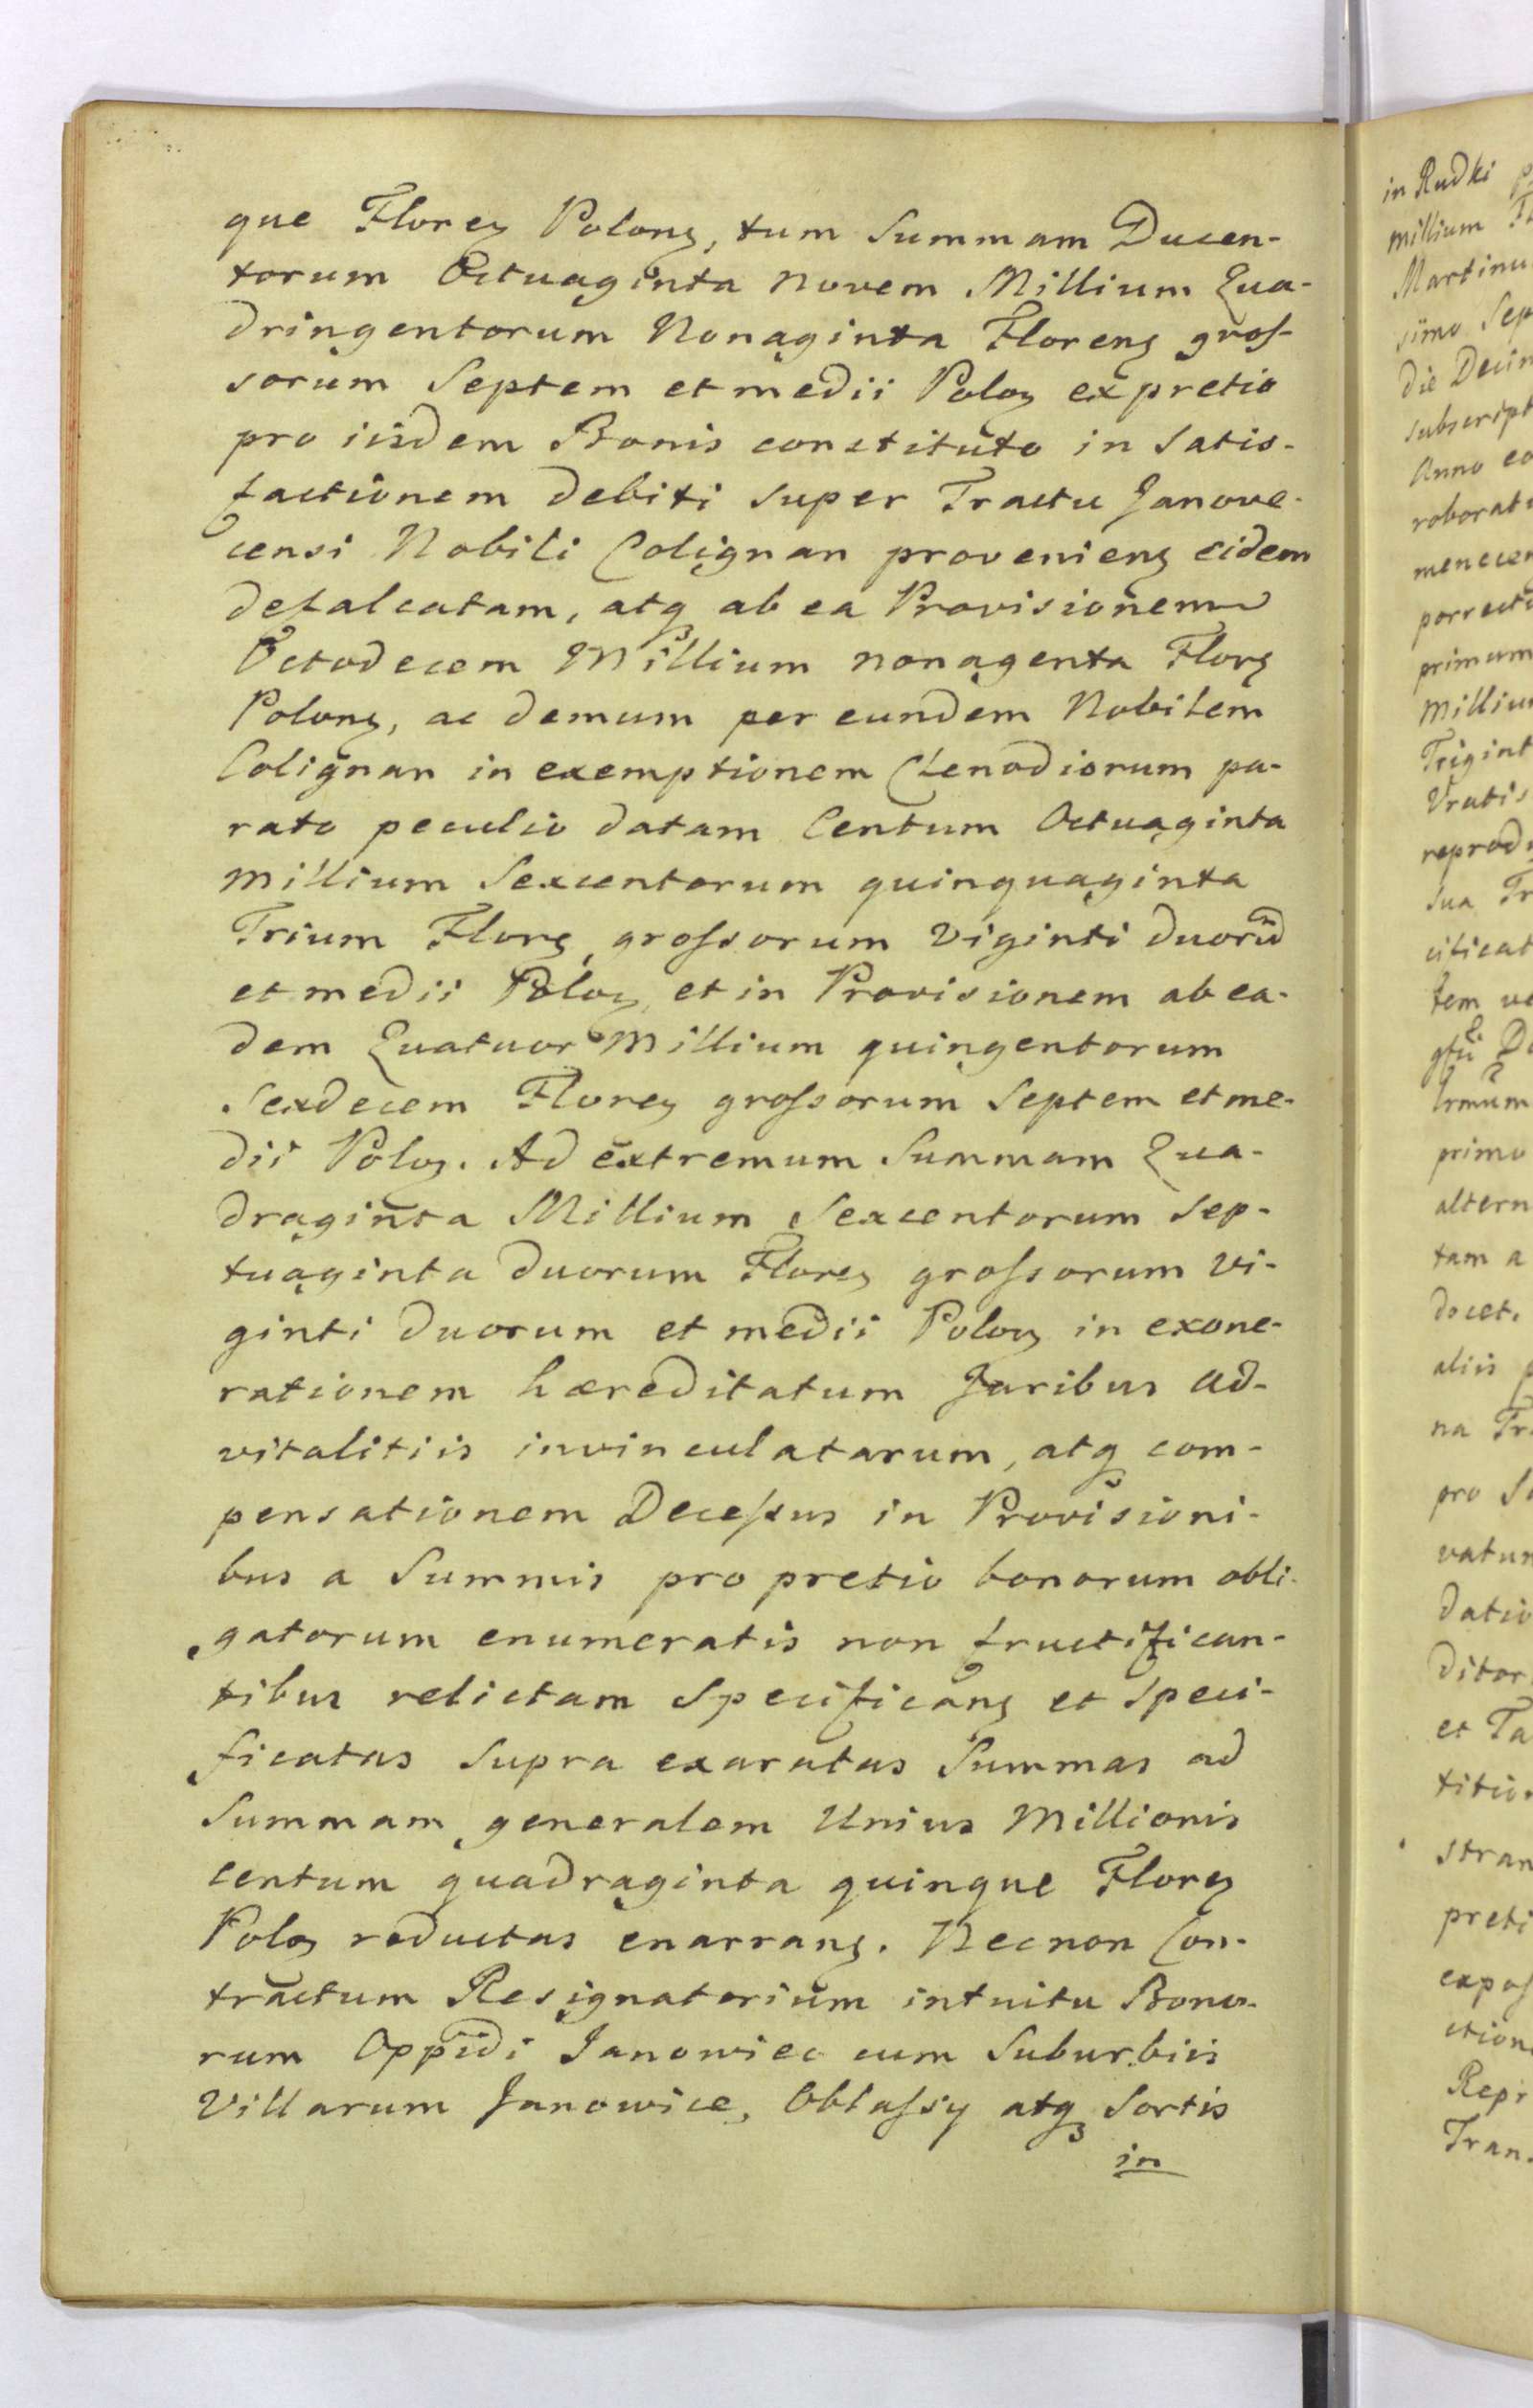 que Floreꝝ Polonꝝ, tum Summam Ducen-
torum Octuaginta novem Millium Qua-
dringentorum Nonaginta Florenꝝ gros-
sorum Septem et medii Poloꝝ ex pretio
pro iisdem Bonis constituto in Satis-
factionem debiti super Tractu Janove-
censi Nobili Colignan provenienꝝ eidem
defalcatam, atqꝫ ab ea Provisionem
Octodecem Millium nonagenta Florꝝ
Polonꝝ, ac demum per eundem Nobilem
Colignan in exemptionem Clenodiorum pa-
rato peculio datam Centum Octuaginta
millium Sexcentorum quinquaginta
Trium Florꝝ, grossorum viginti duorū
et medii Poloꝝ, et in Provisionem ab ea-
dem Quatuor Millium quingentorum
Sexdecem Floreꝝ grossorum Septem et me-
dii Poloꝝ. Ad extremum Summam Qua-
draginta Millium Sexcentorum Sep-
tuaginta duorum Floreꝝ grossorum vi-
ginti duorum et medii Poloꝝ in exone-
rationem hæreditatum Juribus ad-
vitalitiis invinculatarum, atqꝫ com-
pensationem Decessus in Provisioni-
bus a Summis pro pretio bonorum obli-
gatorum enumeratis non fructifican-
tibus relictam Specificanꝝ et speci-
ficatas supra exaratas Summas ad
Summam generalem Unius Millionis
centum quadraginta quinque Floreꝝ
Poloꝝ reductas enarranꝝ. Necnon Con-
tractum Resignatorium intuitu Bono-
rum Oppidi Janowiec cum Suburbiis
Villarum Janowice, Oblassy atqꝫ Sortis
in
in Rudki
millium
Martinu
simo Sep
die Decim
subscript
Anno eo
roborat
menecen
porrect
primum
Milliu
Trigint
Vratis
reprod
sua Tr
cificat
tem ve
primo
altern
tam a
docet.
aliis
na Tr
pro S
vatur
datio
ditor
et Ta
titio
stran
preti
expos
ction
Repr
Tran